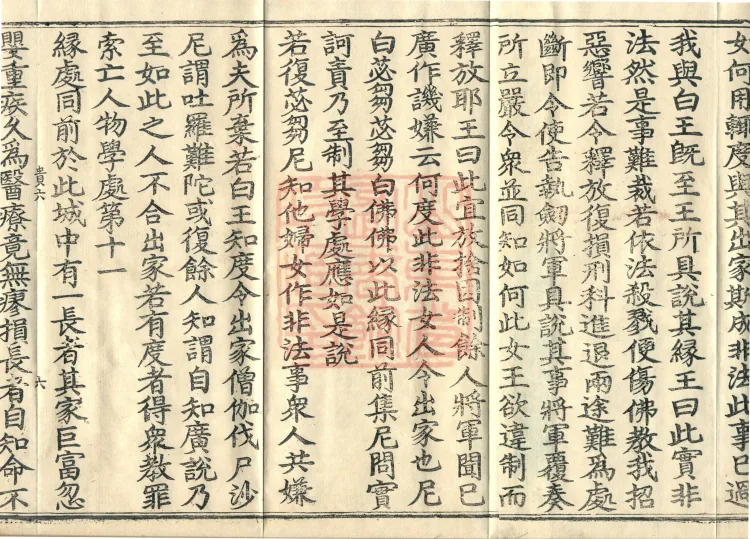 女何用輙度與其出家斯成非法此事已過
我與白王旣至王所具說其緣王曰此實非
法然是事難裁若依法殺戮便傷佛教我招
惡響若令釋放復損刑科進退兩途難爲處
斷即令使告執劒將軍具說其事將軍覆奏
所立嚴令衆並同知如何此女王欲違制而
釋放耶王曰此宜放捨因制餘人將軍聞已
廣作譏嫌云何度此非法女人令出家也尼
白苾芻苾芻白佛佛以此緣同前集尼問實
訶責乃至制其學處應如是說
若復苾芻尼知他婦女作非法事衆人共嫌
爲夫所棄若白王知度令出家僧伽伐尸沙
尼謂吐羅難陀或復餘人知謂自知廣說乃
至如此之人不合出家若有度者得衆教罪
索亡人物學處第十一
緣處同前於此城中有一長者其家巨富忽
貴六 六
嬰重疾久爲醫療竟無瘳損長者自知命不